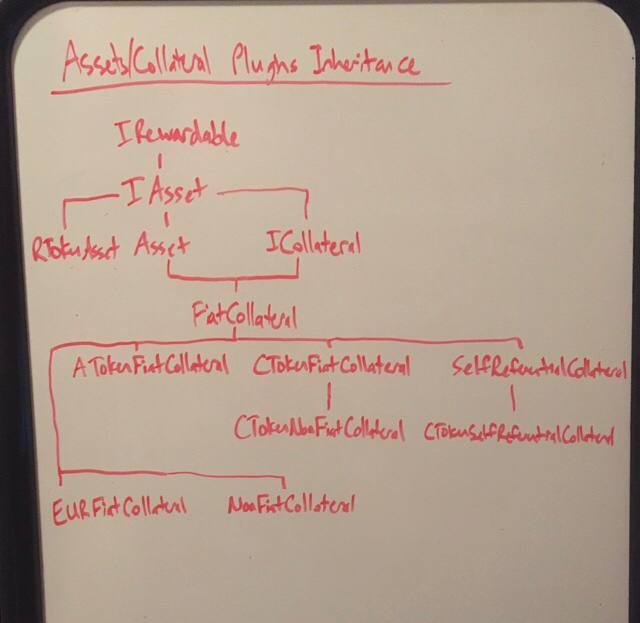 Assets/Collateral Plugins Inheritance
IRewardable
IAsset
RTokenAsset Asset ICollateral
FiatCollateral
ATokenFiatCollateral CTokenFiatCollateral SelfReferentialCollateral
CTokenNonFiatCollateral CTokenSelfReferentialCollateral
EURFiatCollateral NonFiatCollateral